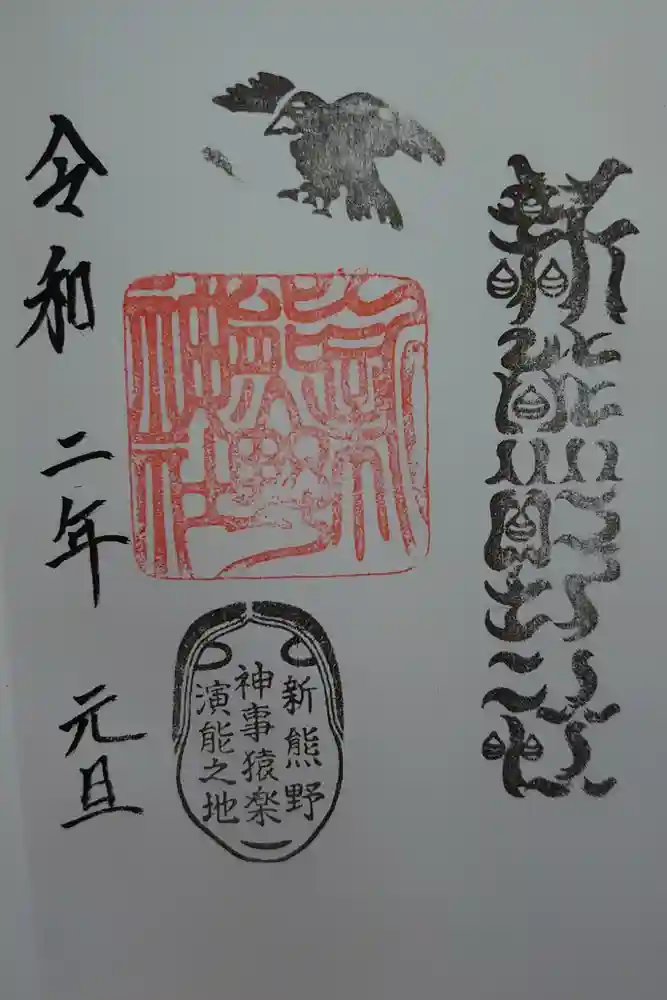 新熊野
新熊野神社
新熊野
神事猿楽
演能之地
令和二年元旦